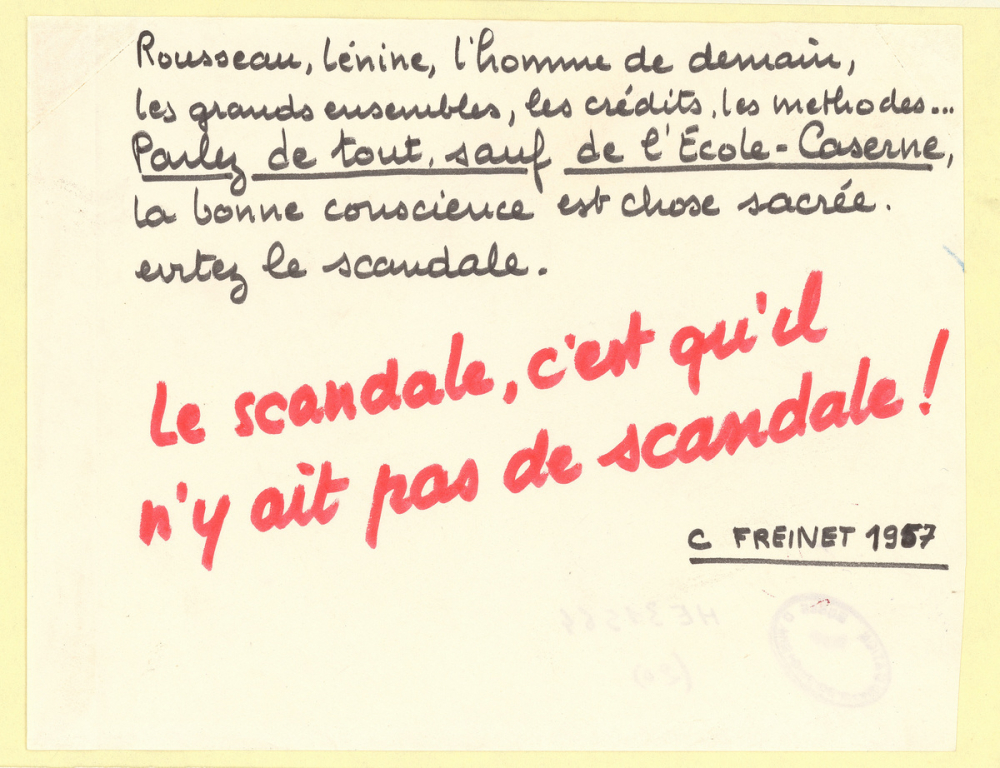 Rousseau, Lénine, l'homme de demain,
les grands ensembles, les crédits, les méthodes...
Parlez de tout, sauf de l'École-Caserne,
la bonne conscience est chose sacrée.
evitez le scandale.
Le scandale, c'est qu'il
n'y ait pas de scandale !
C FREINET 1957
HE 31584